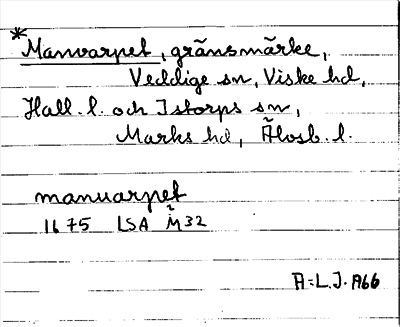 *Manvarpet, gränsmärke,
Veddige sn, Viske hd,
Hall. l. och Istorps sn,
Marks hd, Älvsb. l.
manuarpet
1675 LSA M²32
A=L.J. A66